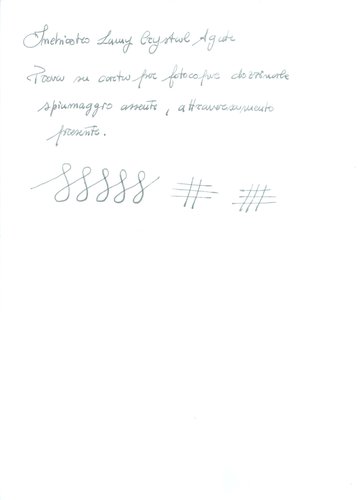 Inchiostro Lamy Crystal Agate
Prova su carta per fotocopie dozzinale
spiumaggio assente, attraversamento
presente.